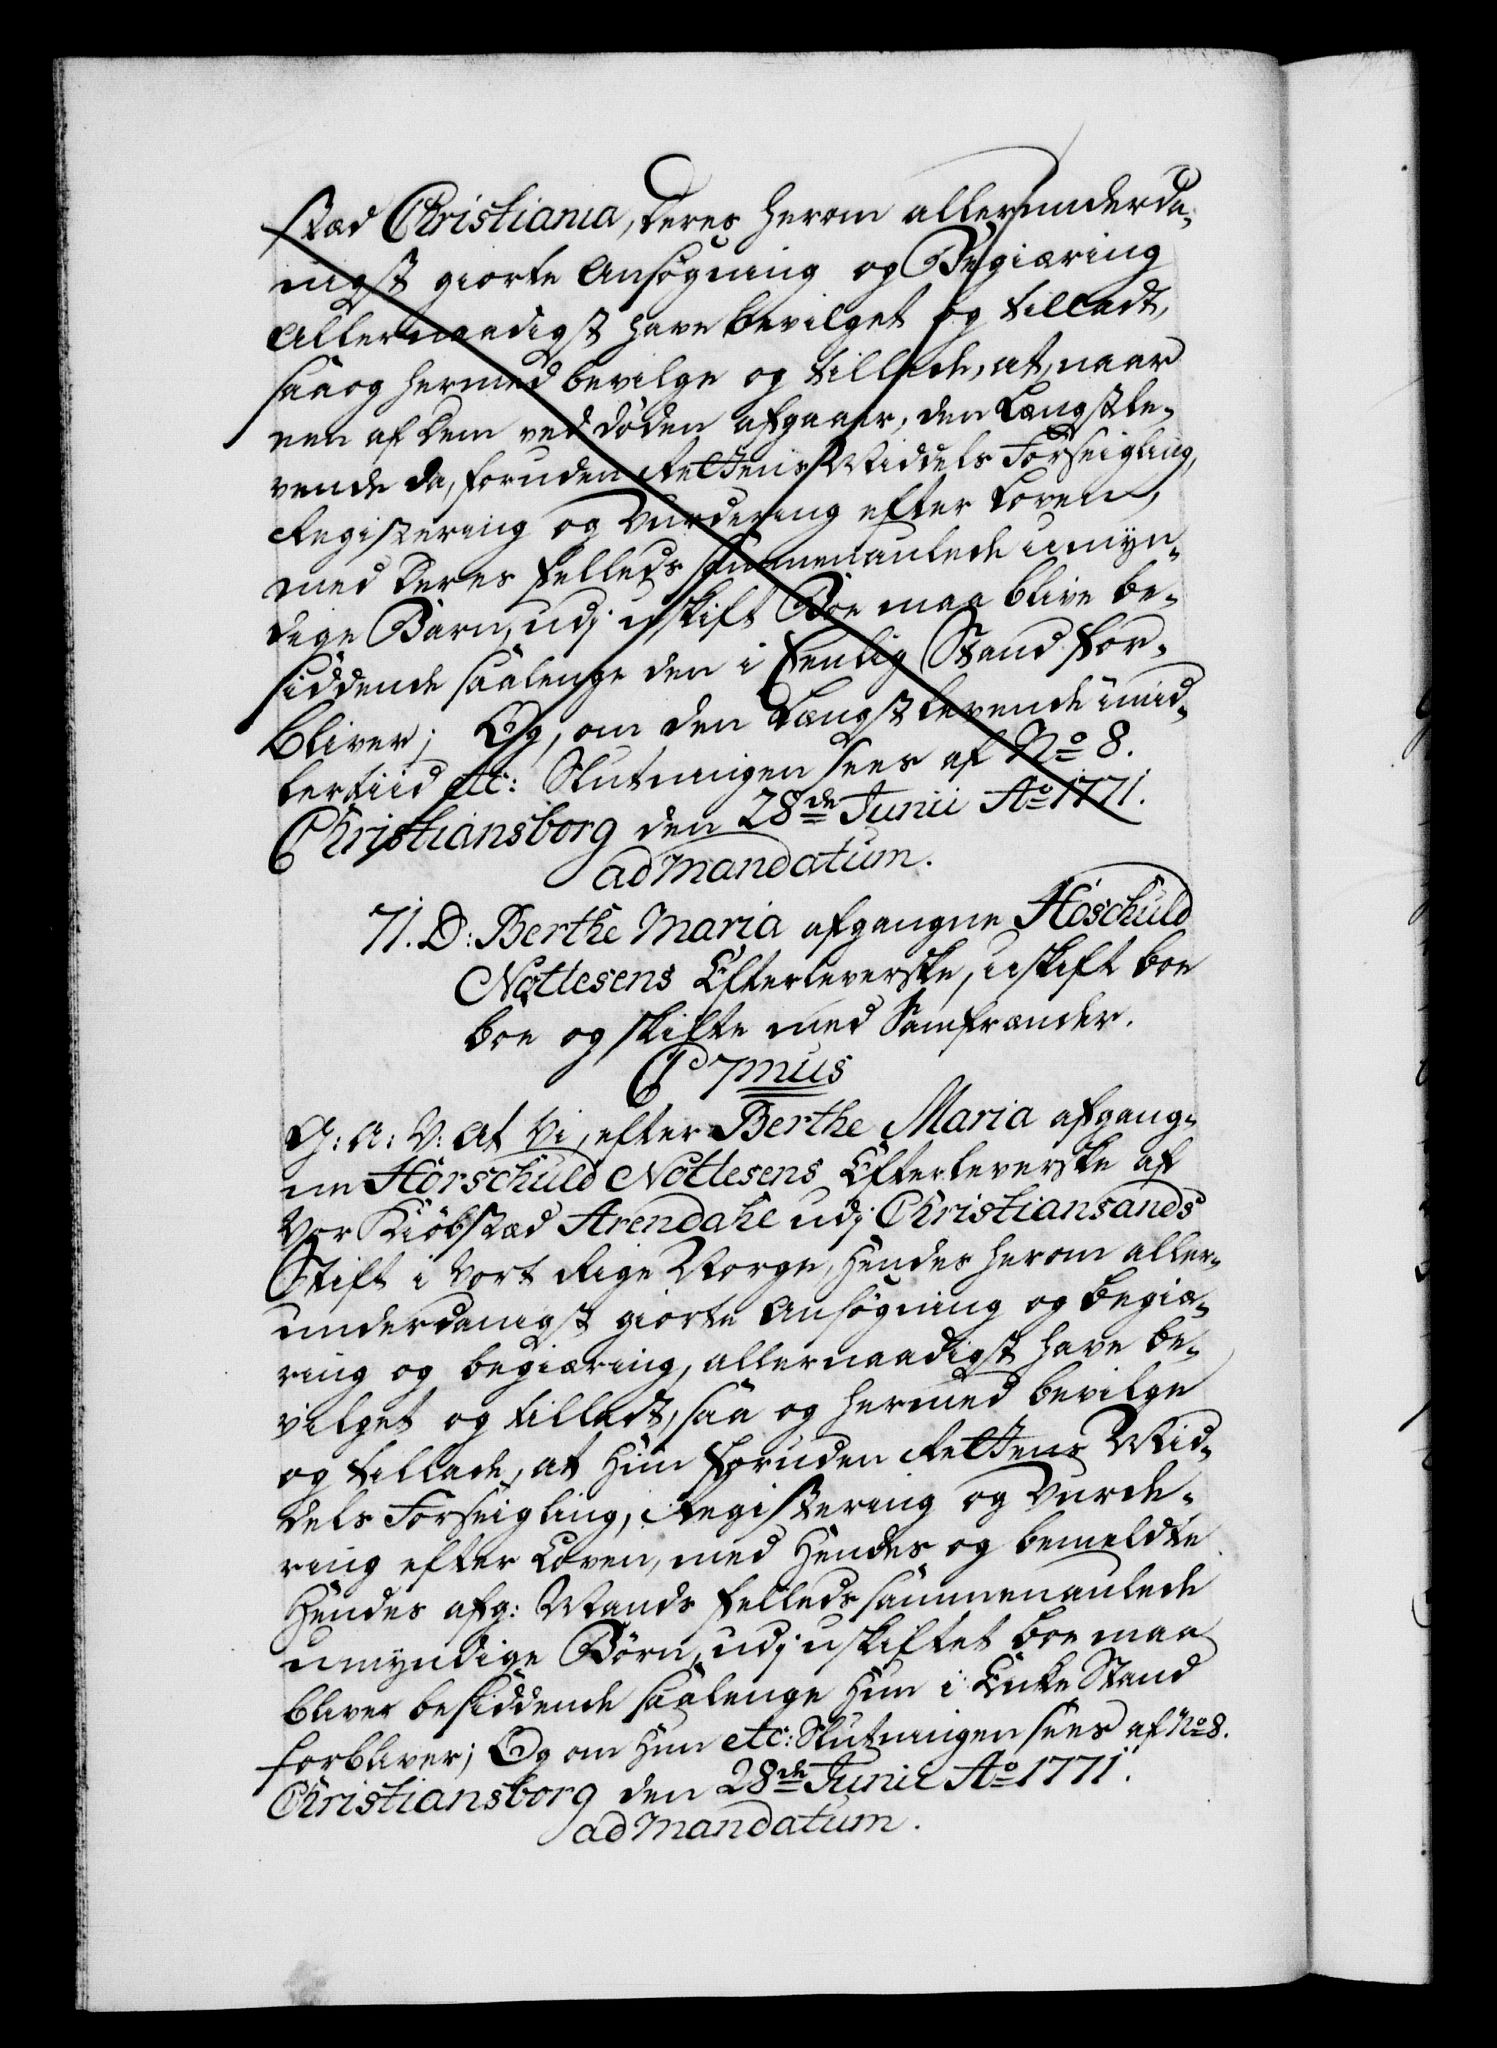 stæd Christiania, deres herom allerunderda-
nigst giorte Ansøgning og Begiæring
Allernaadigst have bevilget og tilladt,
saa og hermed bevilge og tillade, at, naar
een af dem ved døden afgaaer, den Længstle-
vende da, foruden Rettens Middels Forseigling,
Registering og Vurdering efter Loven,
med deres fælleds sammenavlede umyn-
dige Børn, udj uskift Boe maa blive be-
siddende saalenge den i Eenlig Stand for-
bliver; Og, om den Længstlevende imid-
lertiid etc: Slutningen sees af No 8.
Christiansborg den 28de Junii Ao 1771.
ad mandatum.
71. D: Berthe Maria afgangne Höschuld
Nottesens Efterleverske, uskift boe
boe og skifte med Samfrænder.
C 7mus
G: A: V: At Vi, efter Berthe Maria afgang-
ne Hörschuld Nottesens Efterleverske af
Vor Kiøbstæd Arendahl udj Christiansands
Stift i Vort Rige Norge, Hendes herom aller-
underdanigst giorte Ansøgning og begiæ-
ring og begiæring, allernaadigst have be-
vilget og tilladt, saa og hermed bevilge
og tillade, at Hun foruden Rettens Mid-
dels Forseigling, Registering og Vurde-
ring efter Loven, med Hendes og bemeldte
Hendes afg: Mands fælleds sammenavlede
umyndige Børn, udj uskiftet boe maa
bliver besiddende saalenge Hun i Enke Stand
forbliver; Og om Hun etc: Slutningen sees af No 8.
Christiansborg den 28de Junii Ao 1771.
ad mandatum.